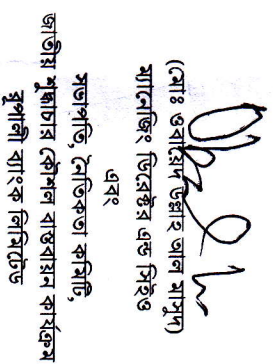 (মোঃ ওবায়েদ উল্লাহ আল মাসুদ)
ম্যানেজিং ডিরেক্টর এন্ড সিইও
এবং
সভাপতি, নৈতিকতা কমিটি,
জাতীয় শুদ্ধাচার কৌশল বাস্তবায়ন কার্যক্রম
রূপালী ব্যাংক লিমিটেড